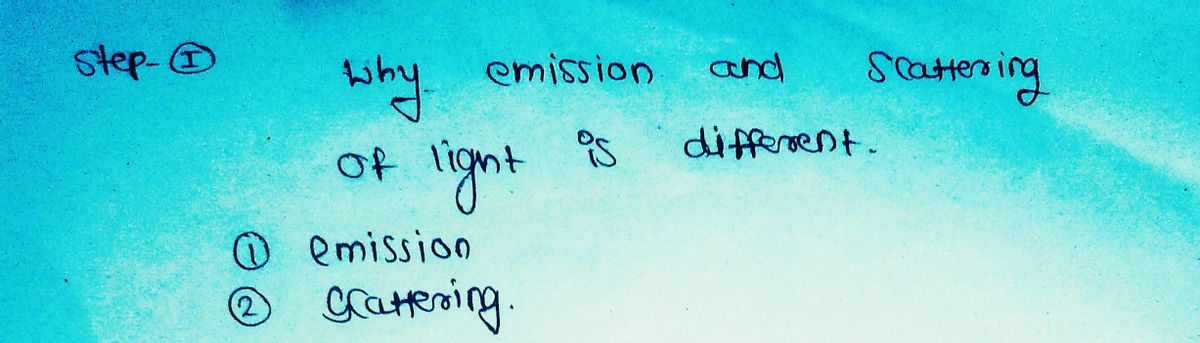 Step- I
why emission and Scattering
of light is different.
1 emission
2 Scattering.